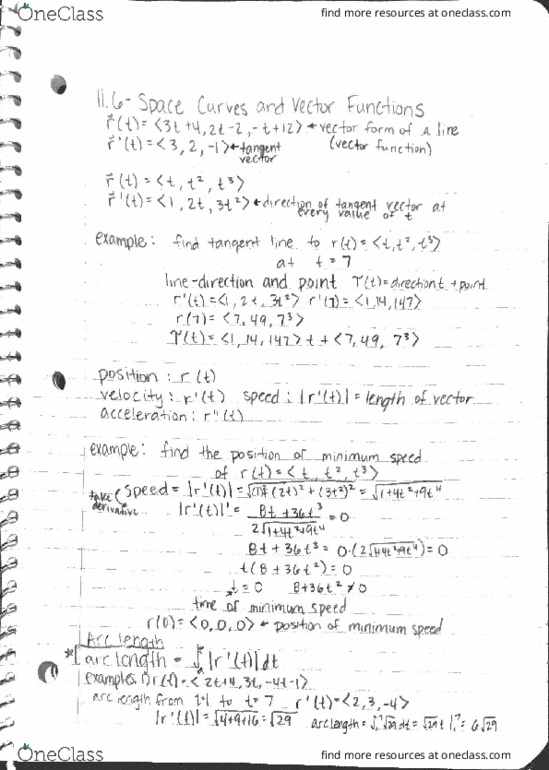 OneClass
find more resources at oneclass.com
11.6 - Space Curves and Vector Functions
r⃗(t) = <3t+4, 2t-2, -t+12> ← vector form of a line
(vector function)
r⃗'(t) = <3, 2, -1> ← tangent
vector
r⃗(t) = <t, t², t³>
r⃗'(t) = <1, 2t, 3t²> ← direction of tangent vector at
every value of t
example: find tangent line to r(t) = <t, t², t³>
at t = 7
line-direction and point T(t) = direction t + point
r'(t) = <1, 2t, 3t²> r'(7) = <1, 14, 147>
r(7) = <7, 49, 7³>
T(t) = <1, 14, 147> t + <7, 49, 7³>
position : r(t)
velocity : r'(t) speed : |r'(t)| = length of vector
acceleration : r"(t)
example: find the position of minimum speed
of r(t) = <t, t², t³>
take derivative
speed = |r'(t)| = √(1)²+(2t)²+(3t²)² = √1+4t²+9t⁴
|r'(t)|' = 8t+36t³ / 2√1+4t²+9t⁴ = 0
8t + 36t³ = 0·(2√1+4t²+9t⁴) = 0
t(8 + 36t²) = 0
t = 0 8+36t² ≠ 0
time of minimum speed
r(0) = <0, 0, 0> ← position of minimum speed
Arc length
* arc length = ∫ₐ |r'(t)| dt
examples 1) r(t) = <2t+4, 3t, -4t-1>
arc length from t=1 to t=7 r'(t) = <2, 3, -4>
|r'(t)| = √4+9+16 = √29 arc length = ∫₁⁷ √29 dt = √29 t |₁⁷ = 6√29
OneClass
find more resources at oneclass.com